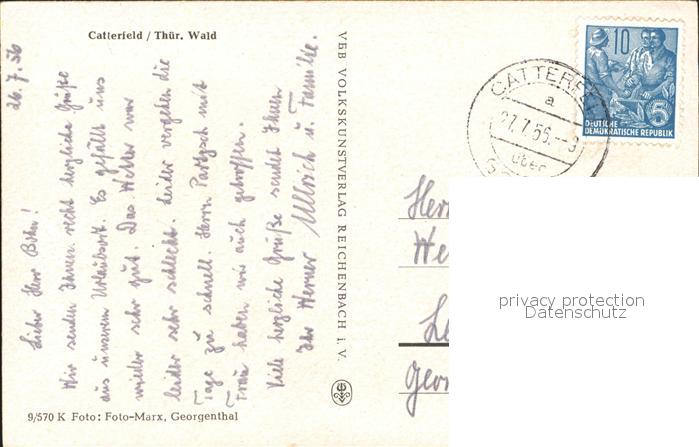 Catterfeld / Thür. Wald
26.7.56
Lieber Herr Böhm!
Wir senden Ihnen recht herzliche Grüße
aus unserem Urlaubsort. Es gefällt uns
wieder sehr gut. Das Wetter war
leider sehr schlecht. Leider vergehen die
Tage zu schnell. Herrn Partzsch mit
Frau haben wir auch getroffen.
Viele herzliche Grüße sendet Ihnen
Ihr Werner Ullrich u. Familie.
9/570 K Foto: Foto-Marx, Georgenthal
VEB VOLKSKUNSTVERLAG REICHENBACH i. V.
10
5
DEUTSCHE
DEMOKRATISCHE REPUBLIK
CATTERFELD
a
27.7.56.-9
über
Herr
We
Le
Geor
privacy protection
Datenschutz